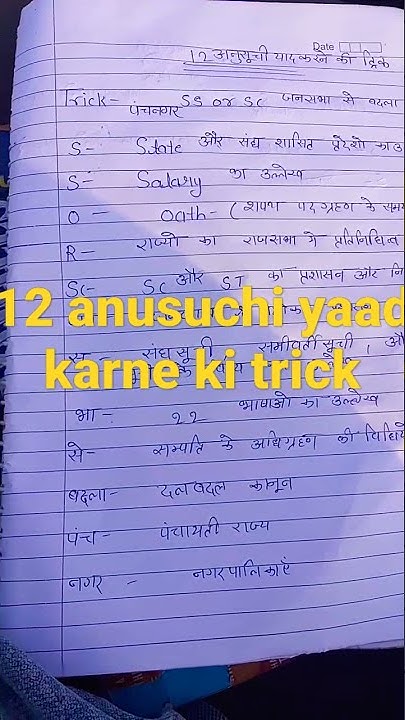 Date
12 अनुसूची याद करने की ट्रिक
Trick- पंचनगर SS or SC जनसभा से बदला
S- State और संघ शासित प्रदेशो का उ
S- Salary का उल्लेख
O - Oath- (शपथ पद ग्रहण के समय
R- राज्यो का राजसभा मे प्रतिनिधित्व
SC- SC और ST का प्रशासन और नि
12 anusuchi yaad
karne ki trick
संघ सूची समवर्ती सूची, औ
भा- 22 भाषाओ का उल्लेख
से- सम्पति के अधिग्रहण की विधियो
बदला- दलबदल कानून
पंच- पंचायती राज्य
नगर - नगरपालिकाएँ